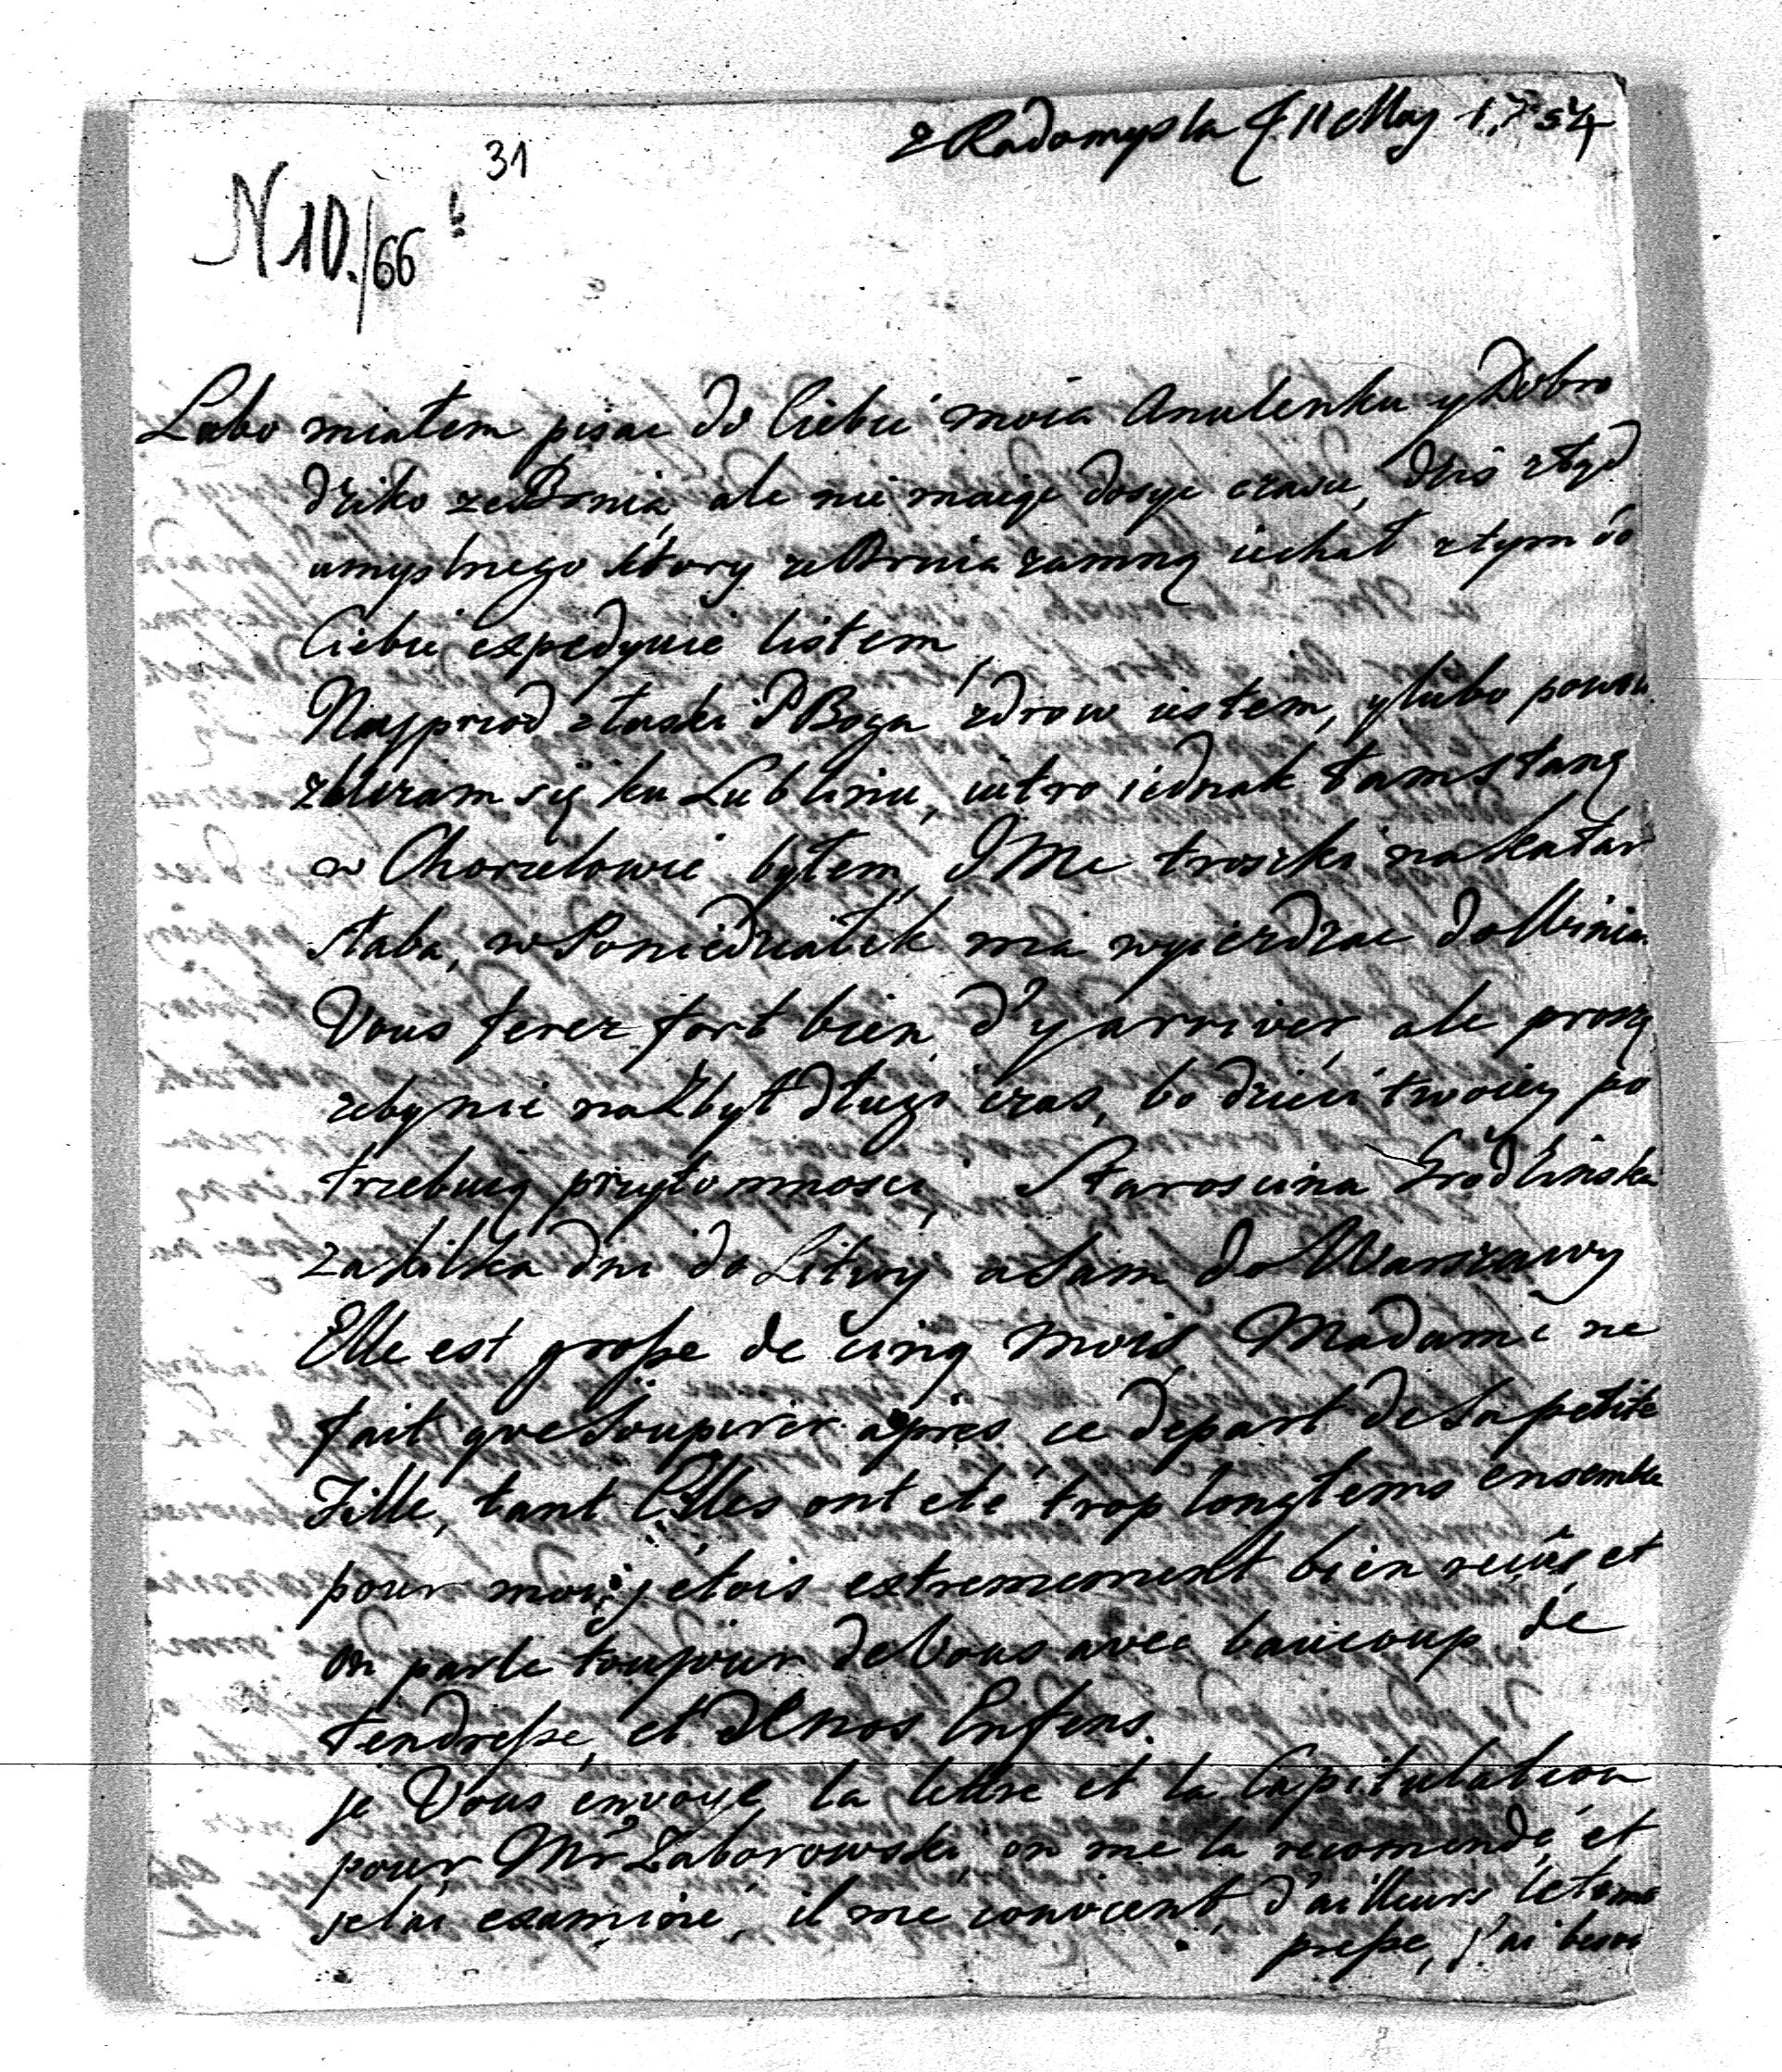 z Radomysla d 11 Maj 1754
31
N 10./66
Lubo miałem pisac do Ciebie moia Anulenku y Dobro
dziko ze Brnia, ale nie maiąc dosyc czasu, dzis ztąd
umyslnego ktory ze Brnia zamną iechał ztym do
Ciebie expedyuie listem,
Nayprzod złaski P Boga zdrow iestem, y lubo powoli
zblizam się ku Lublinu, iutro iednak tam stanę
w Chorzelowie byłem, JMc troszki na katar
słaba, w Poniedziałek ma wyiezdzac do
Vous ferez fort bien d'y arriver, ale proszę
zeby nie nazbyt długi czas, bo dzieci twoiey po
trzebuią przytomnosci, Staroscina Grodlinska
za kilka dni do Litwy a Sam do Warszawy
Elle est grosse de cinq mois, Madame ne
fait que Soupirer apres ce depart de Sa petite
Fille, tant Elles ont eté trop longtems ensemble
pour moi, j'etois extremement bien reçus, et
on parle toujour de Vous avec baucoup de
tendresse, et de nos Enfens.
je Vous envoye la lettre et la Capitulation
pour Mr Zaborowski, on me la recomendé, et
je lai examiné, il me convient, d'ailleurs le tems
presse, j'ai besoi